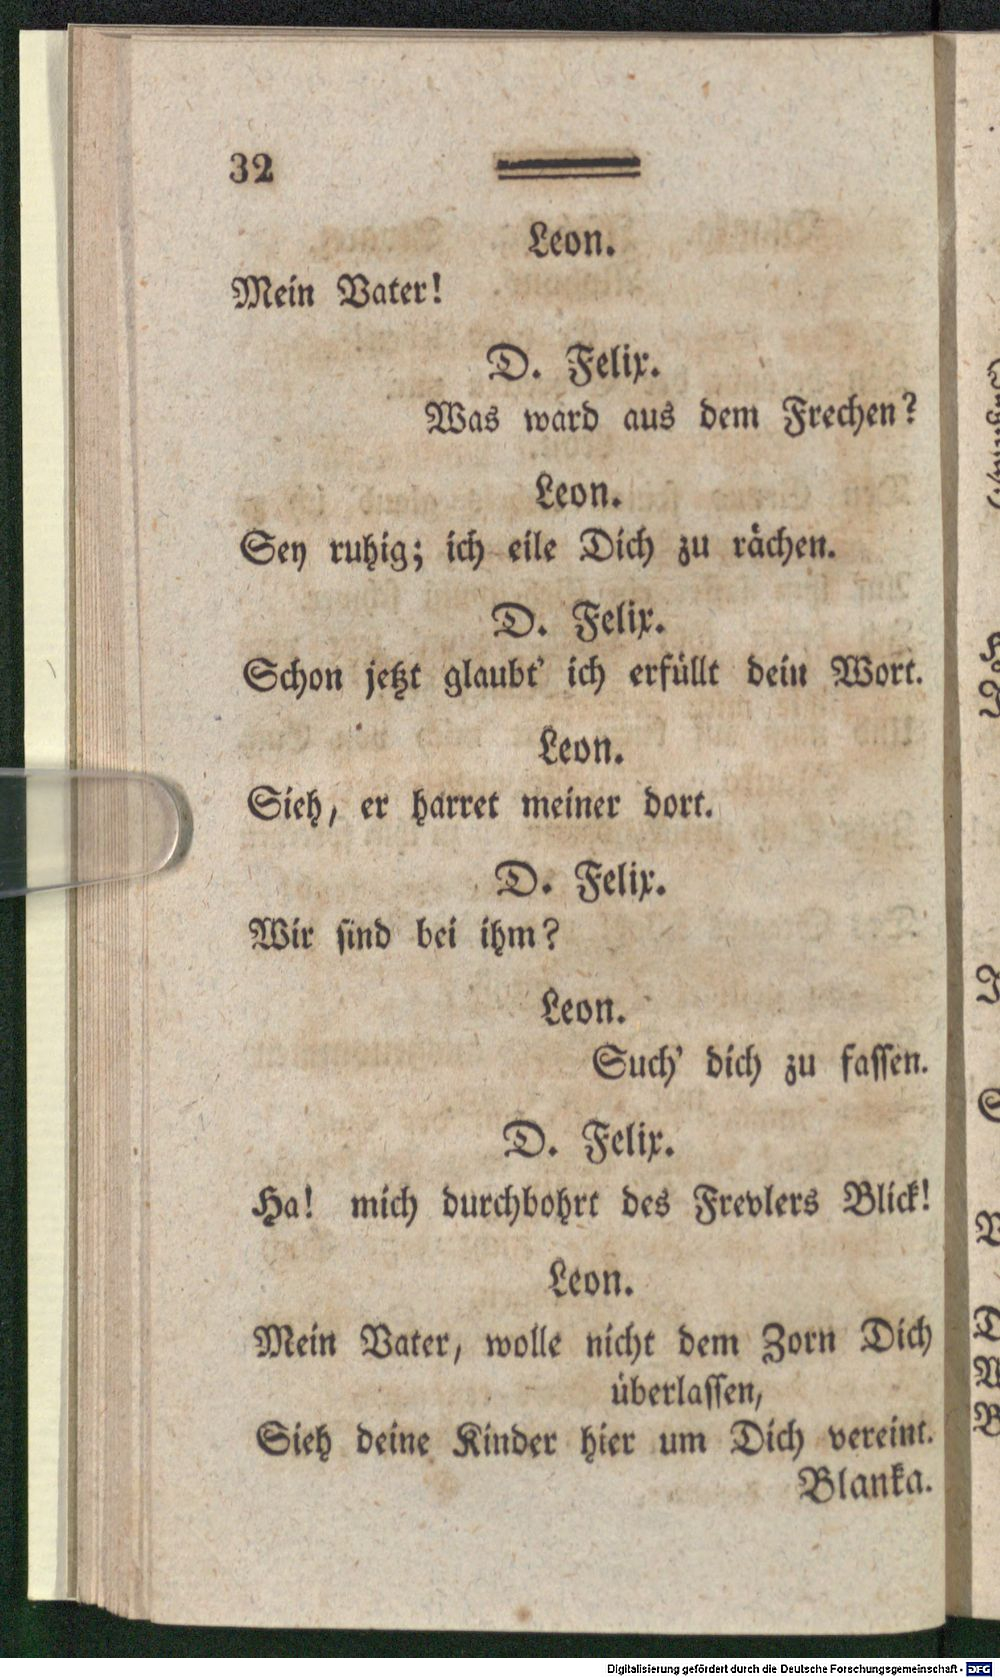 32
Leon.
Mein Vater!
D. Felix.
Was ward aus dem Frechen?
Leon.
Sey ruhig; ich eile Dich zu rächen.
D. Felix.
Schon jetzt glaubt' ich erfüllt dein Wort.
Leon.
Sieh, er harret meiner dort.
D. Felix.
Wir sind bei ihm?
Leon.
Such' dich zu fassen.
D. Felix.
Ha! mich durchbohrt des Frevlers Blick!
Leon.
Mein Vater, wolle nicht dem Zorn Dich
überlassen,
Sieh deine Kinder hier um Dich vereint.
Blanka.
Digitalisierung gefördert durch die Deutsche Forschungsgemeinschaft - DFG